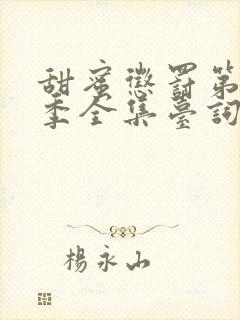 甜蜜懲罰第
季全集臺詞
楊永山